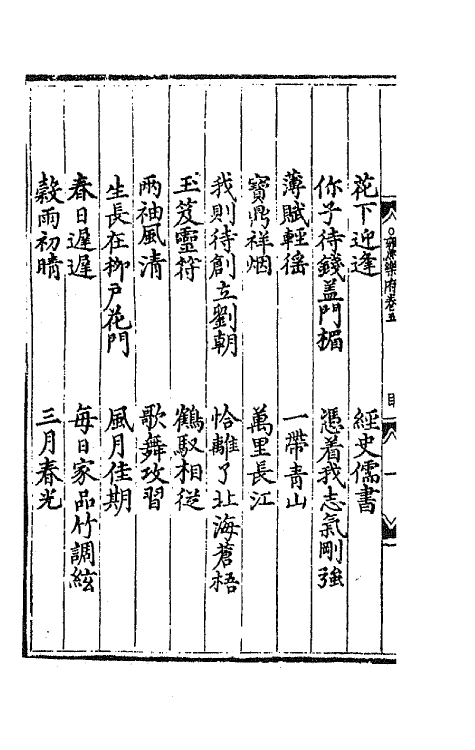 雍熙樂府卷五 目 一
花下迎逢 經史儒書
你子待錢蓋門楣 憑着我志氣剛強
薄賦輕徭 一帶青山
寶鼎祥烟 萬里長江
我則待創立劉朝 恰離了北海蒼梧
玉笈靈符 鶴馭相從
兩袖風清 歌舞攻習
生長在柳戶花門 風月佳期
春日遲遲 每日家品竹調絃
穀雨初晴 三月春光